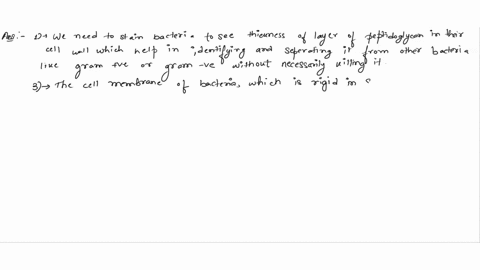 Ans:- 1)→ We need to stain bacteria to see thickness of layer of peptidoglycan in their
cell wall which help in identifying and seperating it from other bacteria
like gram +ve or gram -ve without necessarily killing it.
3)→ The cell membrane of bacteria, which is rigid in